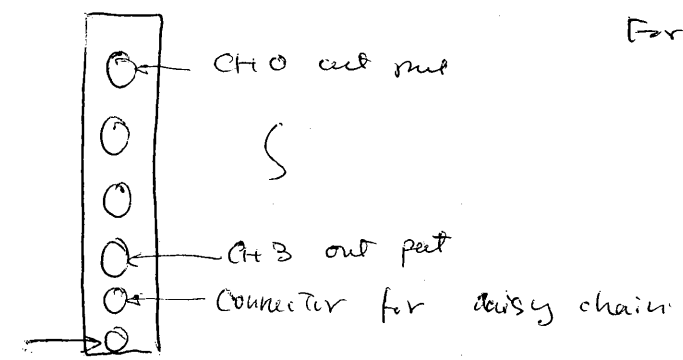 For
CH 0 out put
CH 3 out put
Connector for daisy chain